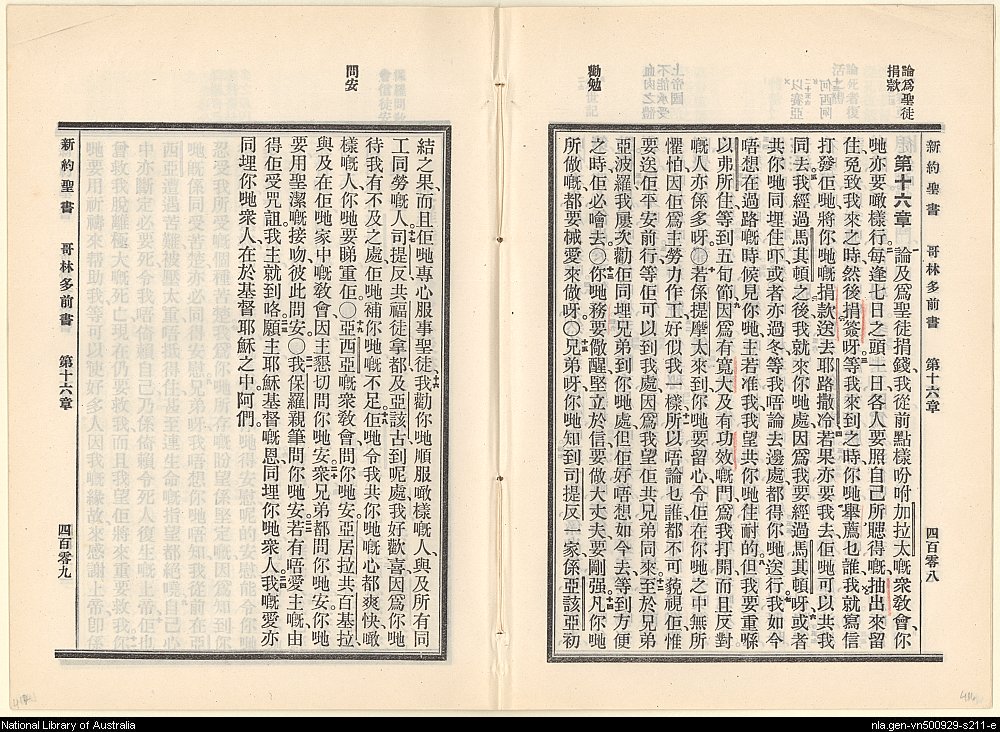 論爲聖徒
捐欵
勸勉
新約聖書 哥林多前書 第十六章 四百零八
第十六章 論及爲聖徒捐錢、我從前點樣吩咐加拉太嘅衆敎會、你
哋亦要噉樣行。每逢七日之頭一日、各人要照自己所聽得嘅、抽出來留
住、免致我來之時然後捐簽呀。等我來到之時、你哋舉薦乜誰、我就寫信
打發佢哋將你哋嘅捐款送去耶路撒冷。若果亦要我去、佢哋可以共我
同去。我經過馬其頓之後、我就來你哋處、因爲我要經過馬其頓呀。或者
共你哋同埋住吓、或者亦過冬、等我唔論去邊處、都得你哋送行。我如今
唔想在過路嘅時候見你哋、主若准我、我望共你哋住耐的。但我要重喺
以弗所住、等到五旬節。因爲有寬大及有功效嘅門、爲我打開、而且反對
嘅人亦係多呀。〇若係提摩太來到、你哋要留心令佢在你哋之中無所
懼怕、因佢爲主勞力作工、好似我一樣。所以唔論乜誰都不可藐視佢、惟
要送佢平安前行、等佢可以到我處、因爲我望佢共兄弟同來。至於兄弟
亞波羅、我屢次勸佢同埋兄弟到你哋處、但佢好唔想如今去、等到方便
之時、佢必噲去。〇你哋務要儆醒、堅立於信、要做大丈夫、要剛强。凡你哋
所做嘅、都要械愛來做呀。〇兄弟呀、你哋知到司提反一家、係亞該亞初
問安
結之果、而且佢哋專心服事聖徒、我勸你哋順服噉樣嘅人、與及所有同
工同勞嘅人。司提反共福徒拿都及亞該古到呢處、我好歡喜、因爲你哋
待我有不及之處、佢哋補你哋嘅不足。佢哋令我共你哋嘅心都爽快、噉
樣嘅人、你哋要睇重佢。〇亞西亞嘅衆敎會問你哋安。亞居拉共百基拉
與及在佢哋家中嘅敎會、因主懇切問你哋安。衆兄弟都問你哋安。你哋
要用聖潔嘅接吻、彼此問安。〇我保羅親筆問你哋安。若有唔愛主嘅、由
得佢受咒詛、我主就到咯。願主耶穌基督嘅恩、同埋你哋衆人。我嘅愛、亦
同埋你哋衆人、在於基督耶穌之中。阿們。
新約聖書 哥林多前書 第十六章 四百零九
National Library of Australia
nla.gen-vn500929-s211-e